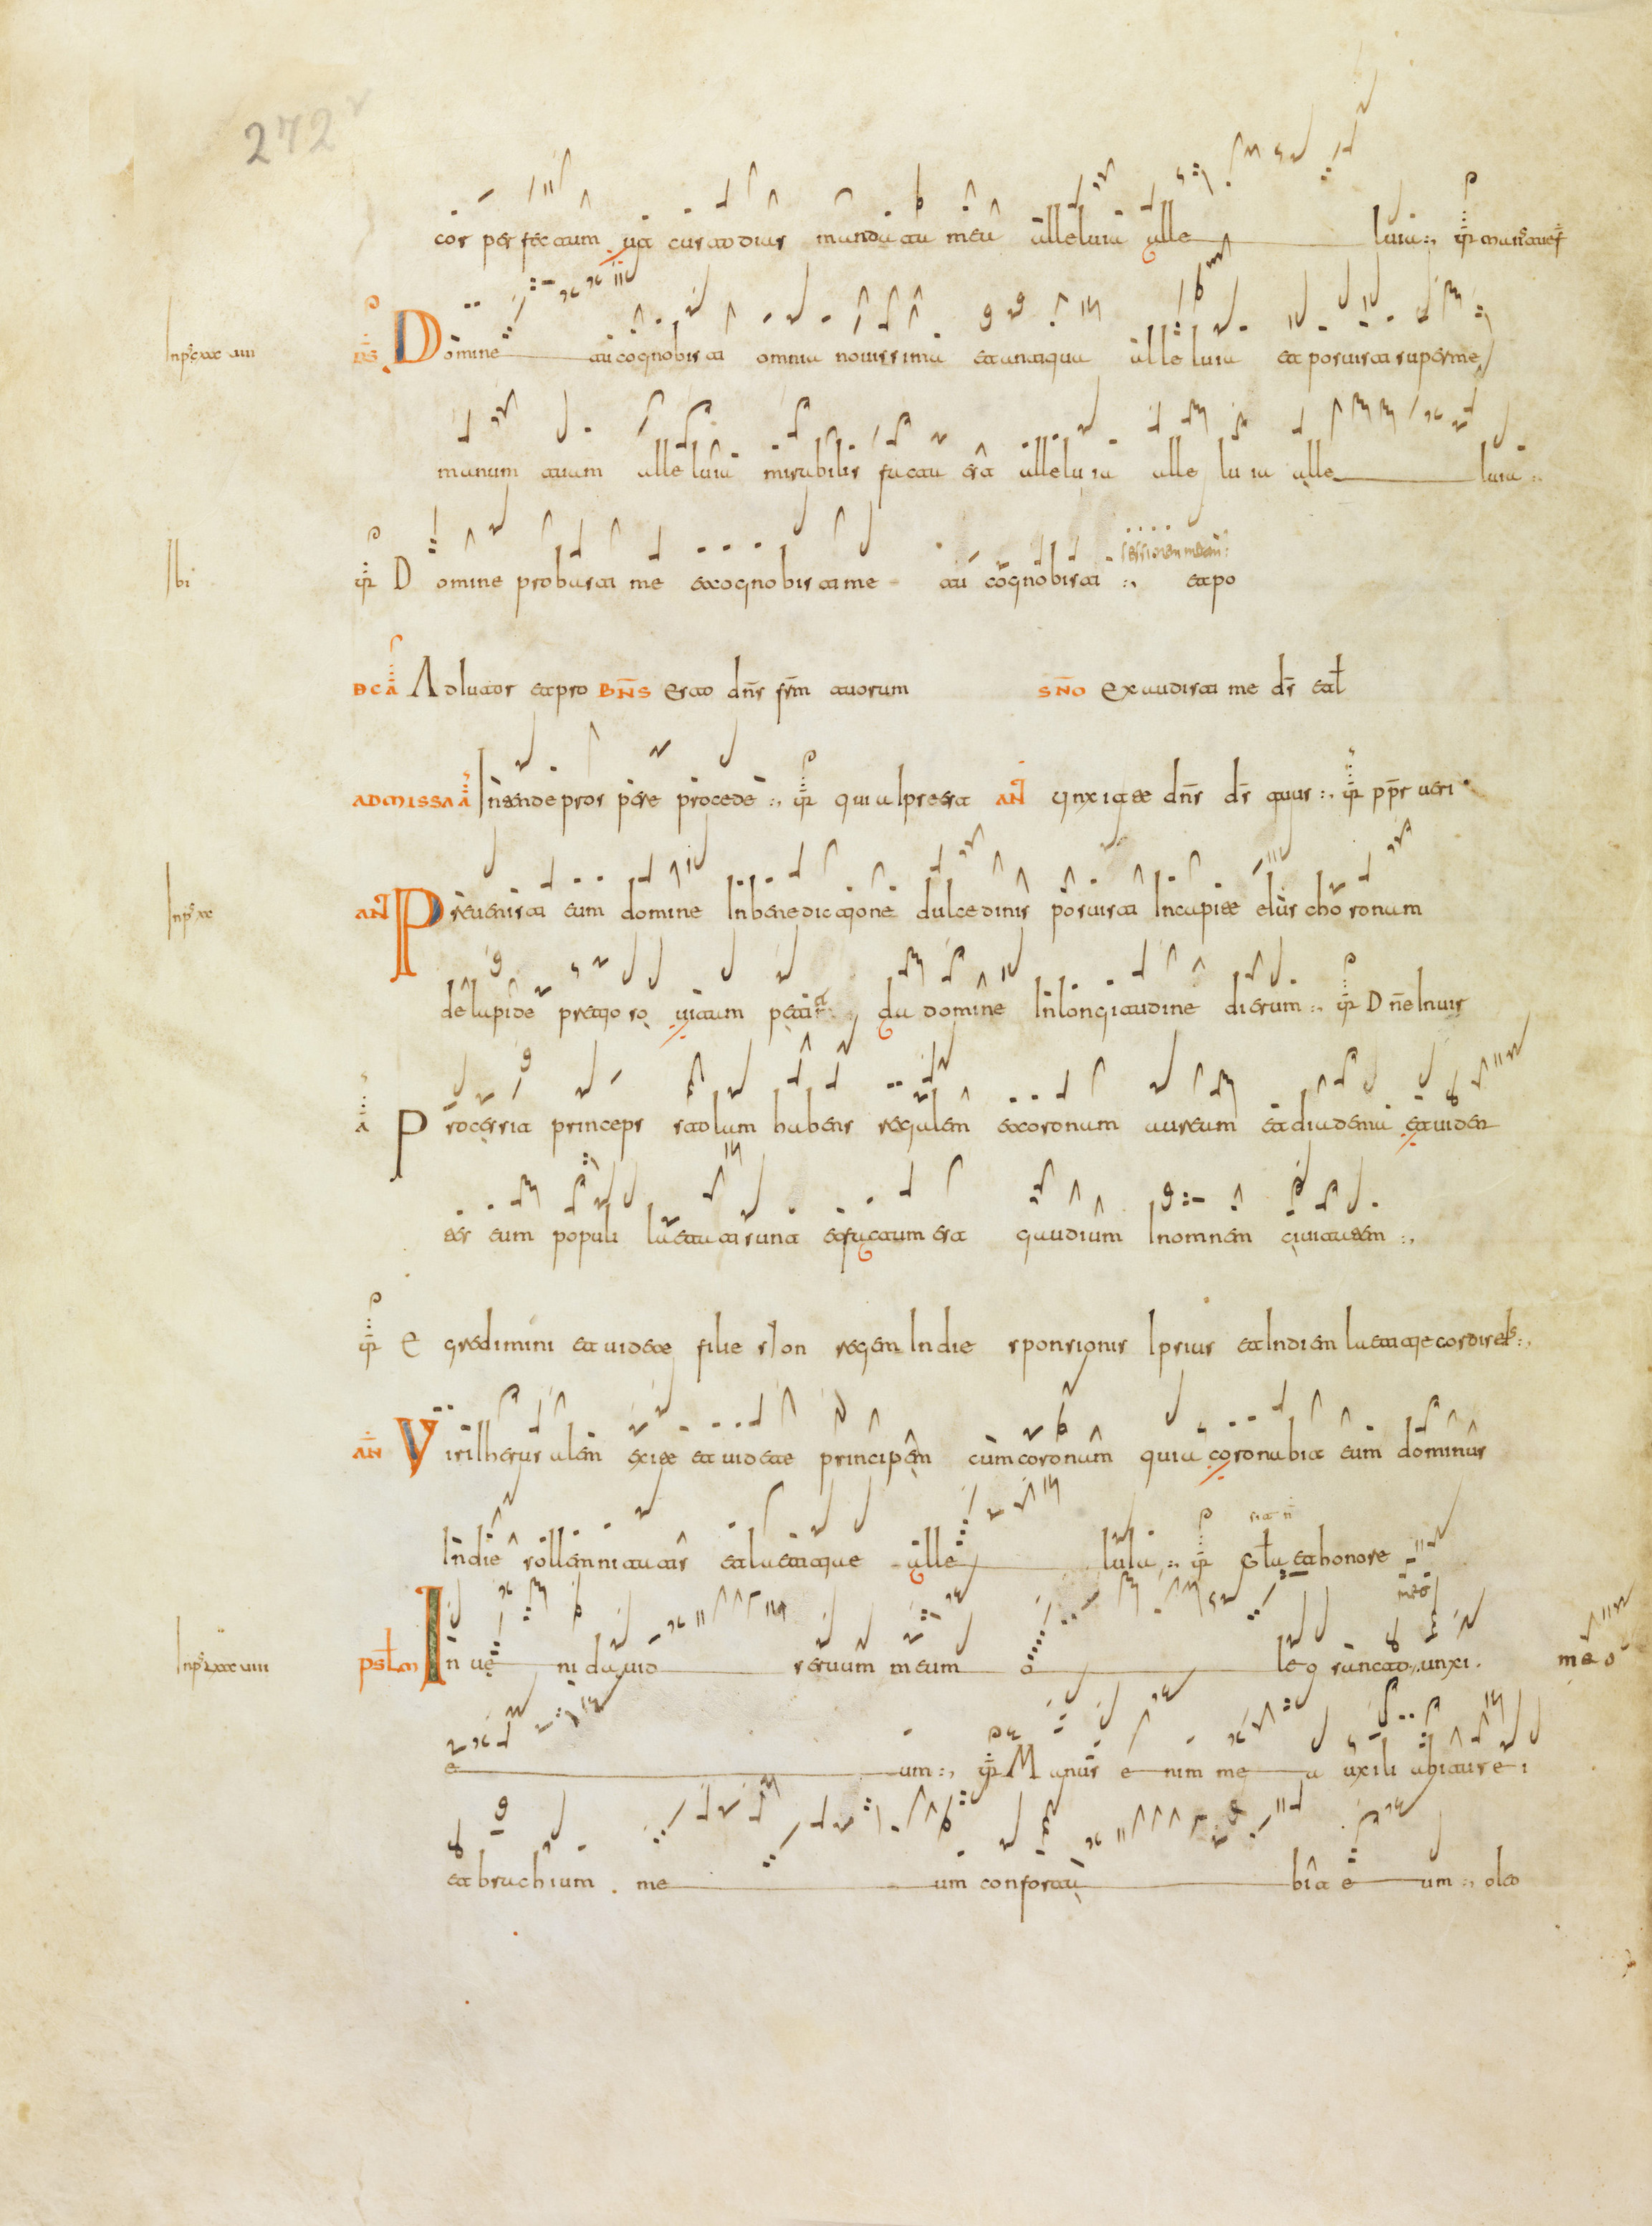 cor perfectum ut custodias mandata mea alleluia alle luia :,
In ps CXXXVIII Domine tu cognobisti omnia novissima et antiqua alleluia et posuisti super me
manum tuam alleluia mirabilis facta est alleluia alleluia alle luia :,
Ibi VR Domine probasti me et cognobisti me tu cognobisti :, et po
sessionem meam
Adiutor et pro BNS Esto dns frm tuorum SNO Exaudisti me ds et
AD MISSA A Intende prospere procede :, VR quia Ipse est AN Unxit te dns ds tuus :, VR ppr veri
In ps XX AN Prevenisti eum domine In benedictione dulcedinis posuisti In capite eius choronam
de lapide pretioso vitam petit a te da domine In longitudine dierum :, VR Dne In vir
A Processit princeps stolam habens regalem et coronam auream et diadema et viden
tes eum populi laetati sunt et factum est gaudium In omnem civitatem :,
VR Egredimini et videte filie sion regem In die sponsionis Ipsius et In diem laetitie cordis els :,
AN Viri Iherusalem exite et videte principem cum coronam quia coronabit eum dominus
In die sollemnitatis et laetitiae alle luia :, VR Gla et honore
In ps LXXXVIII PSLM Inveni david servum meum oleo sancto meo unxi meo
e um :, VR Manus enim mea auxiliabitur ei
et brachium meum confortabit eum :, oleo
272v